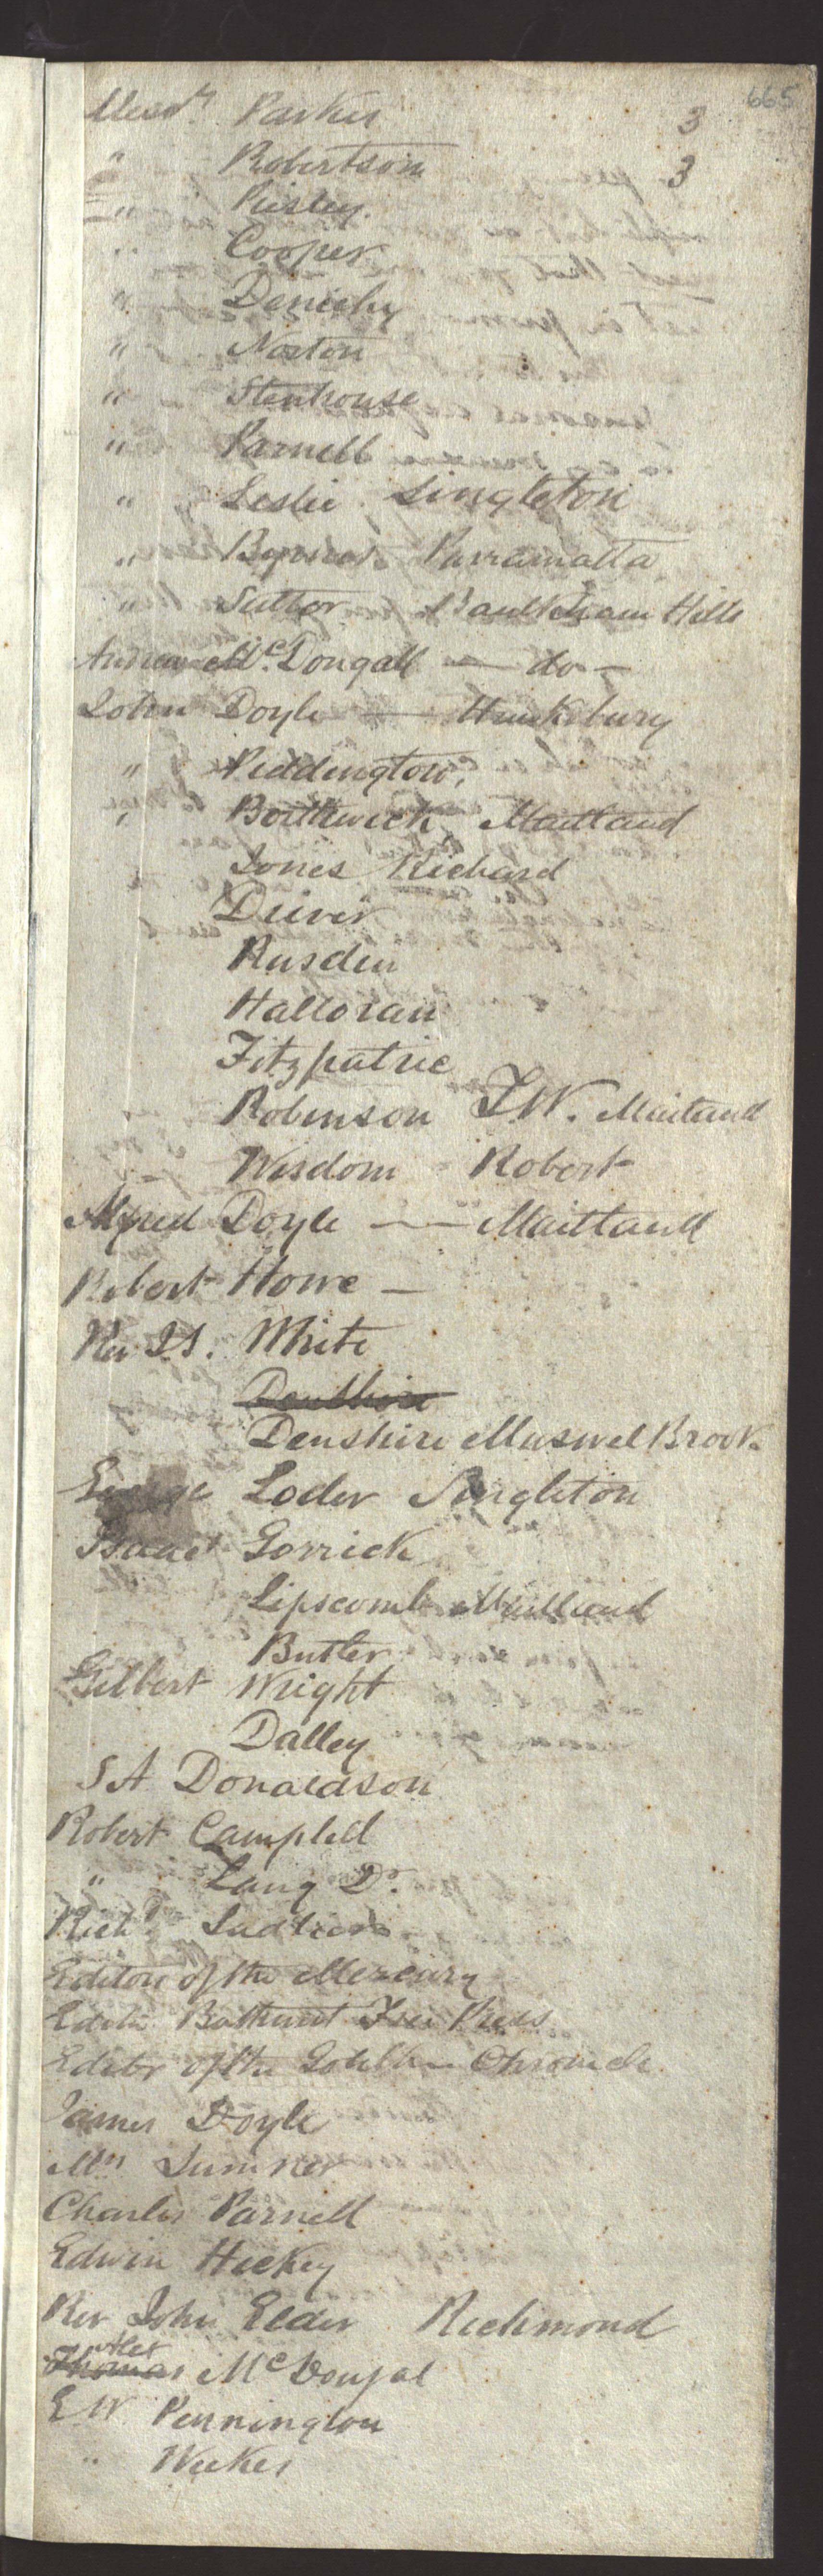 665
Messrs Parkes 3
" Robertson 3
" Piesley.
" Cooper
" Deniehy
" Norton
" Stenhouse
" Parnell
" Leslie Singleton
" Byrnes Parramatta
" Suttor Baulkham Hills
Andrew McDougall — do —
John Doyle — Hawksbury
" Piddington,
" Bothwick, Maitland
Jones Richard
Driver
Rusden
Halloran
Fitzpatric
Robinson F.W. Maitland
Wisdom Robert
Alfred Doyle — Maitland
Robert Howe —
Rev Is. White
Denshire Muswel Brook
George Loder Singleton
Isaac Gorrick
Lipscomb Maitland
Butler
Gilbert Wright
Dalley
S A Donaldson
Robert Campbell
" Lang Dr.
Richd Sadlier
Editor of the Mercury
Editor Bathurst Free Press
Editor of the Goulbn Chronicle
James Doyle
Mrs Sumner
Charles Parnell
Edwin Hickey
Rev John Elder Richmond
Alex
Thomas McDougal
E W Pennington
" Weekes